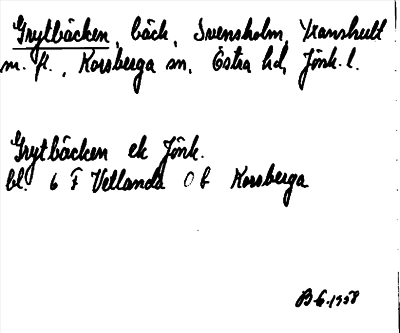 Grytbäcken, bäck, Svensholm, Transhult
m. fl., Korsberga sn, Östra hd, Jönk. l.
Grytbäcken ek Jönk.
bl. 6 F Vetlanda 0 b Korsberga